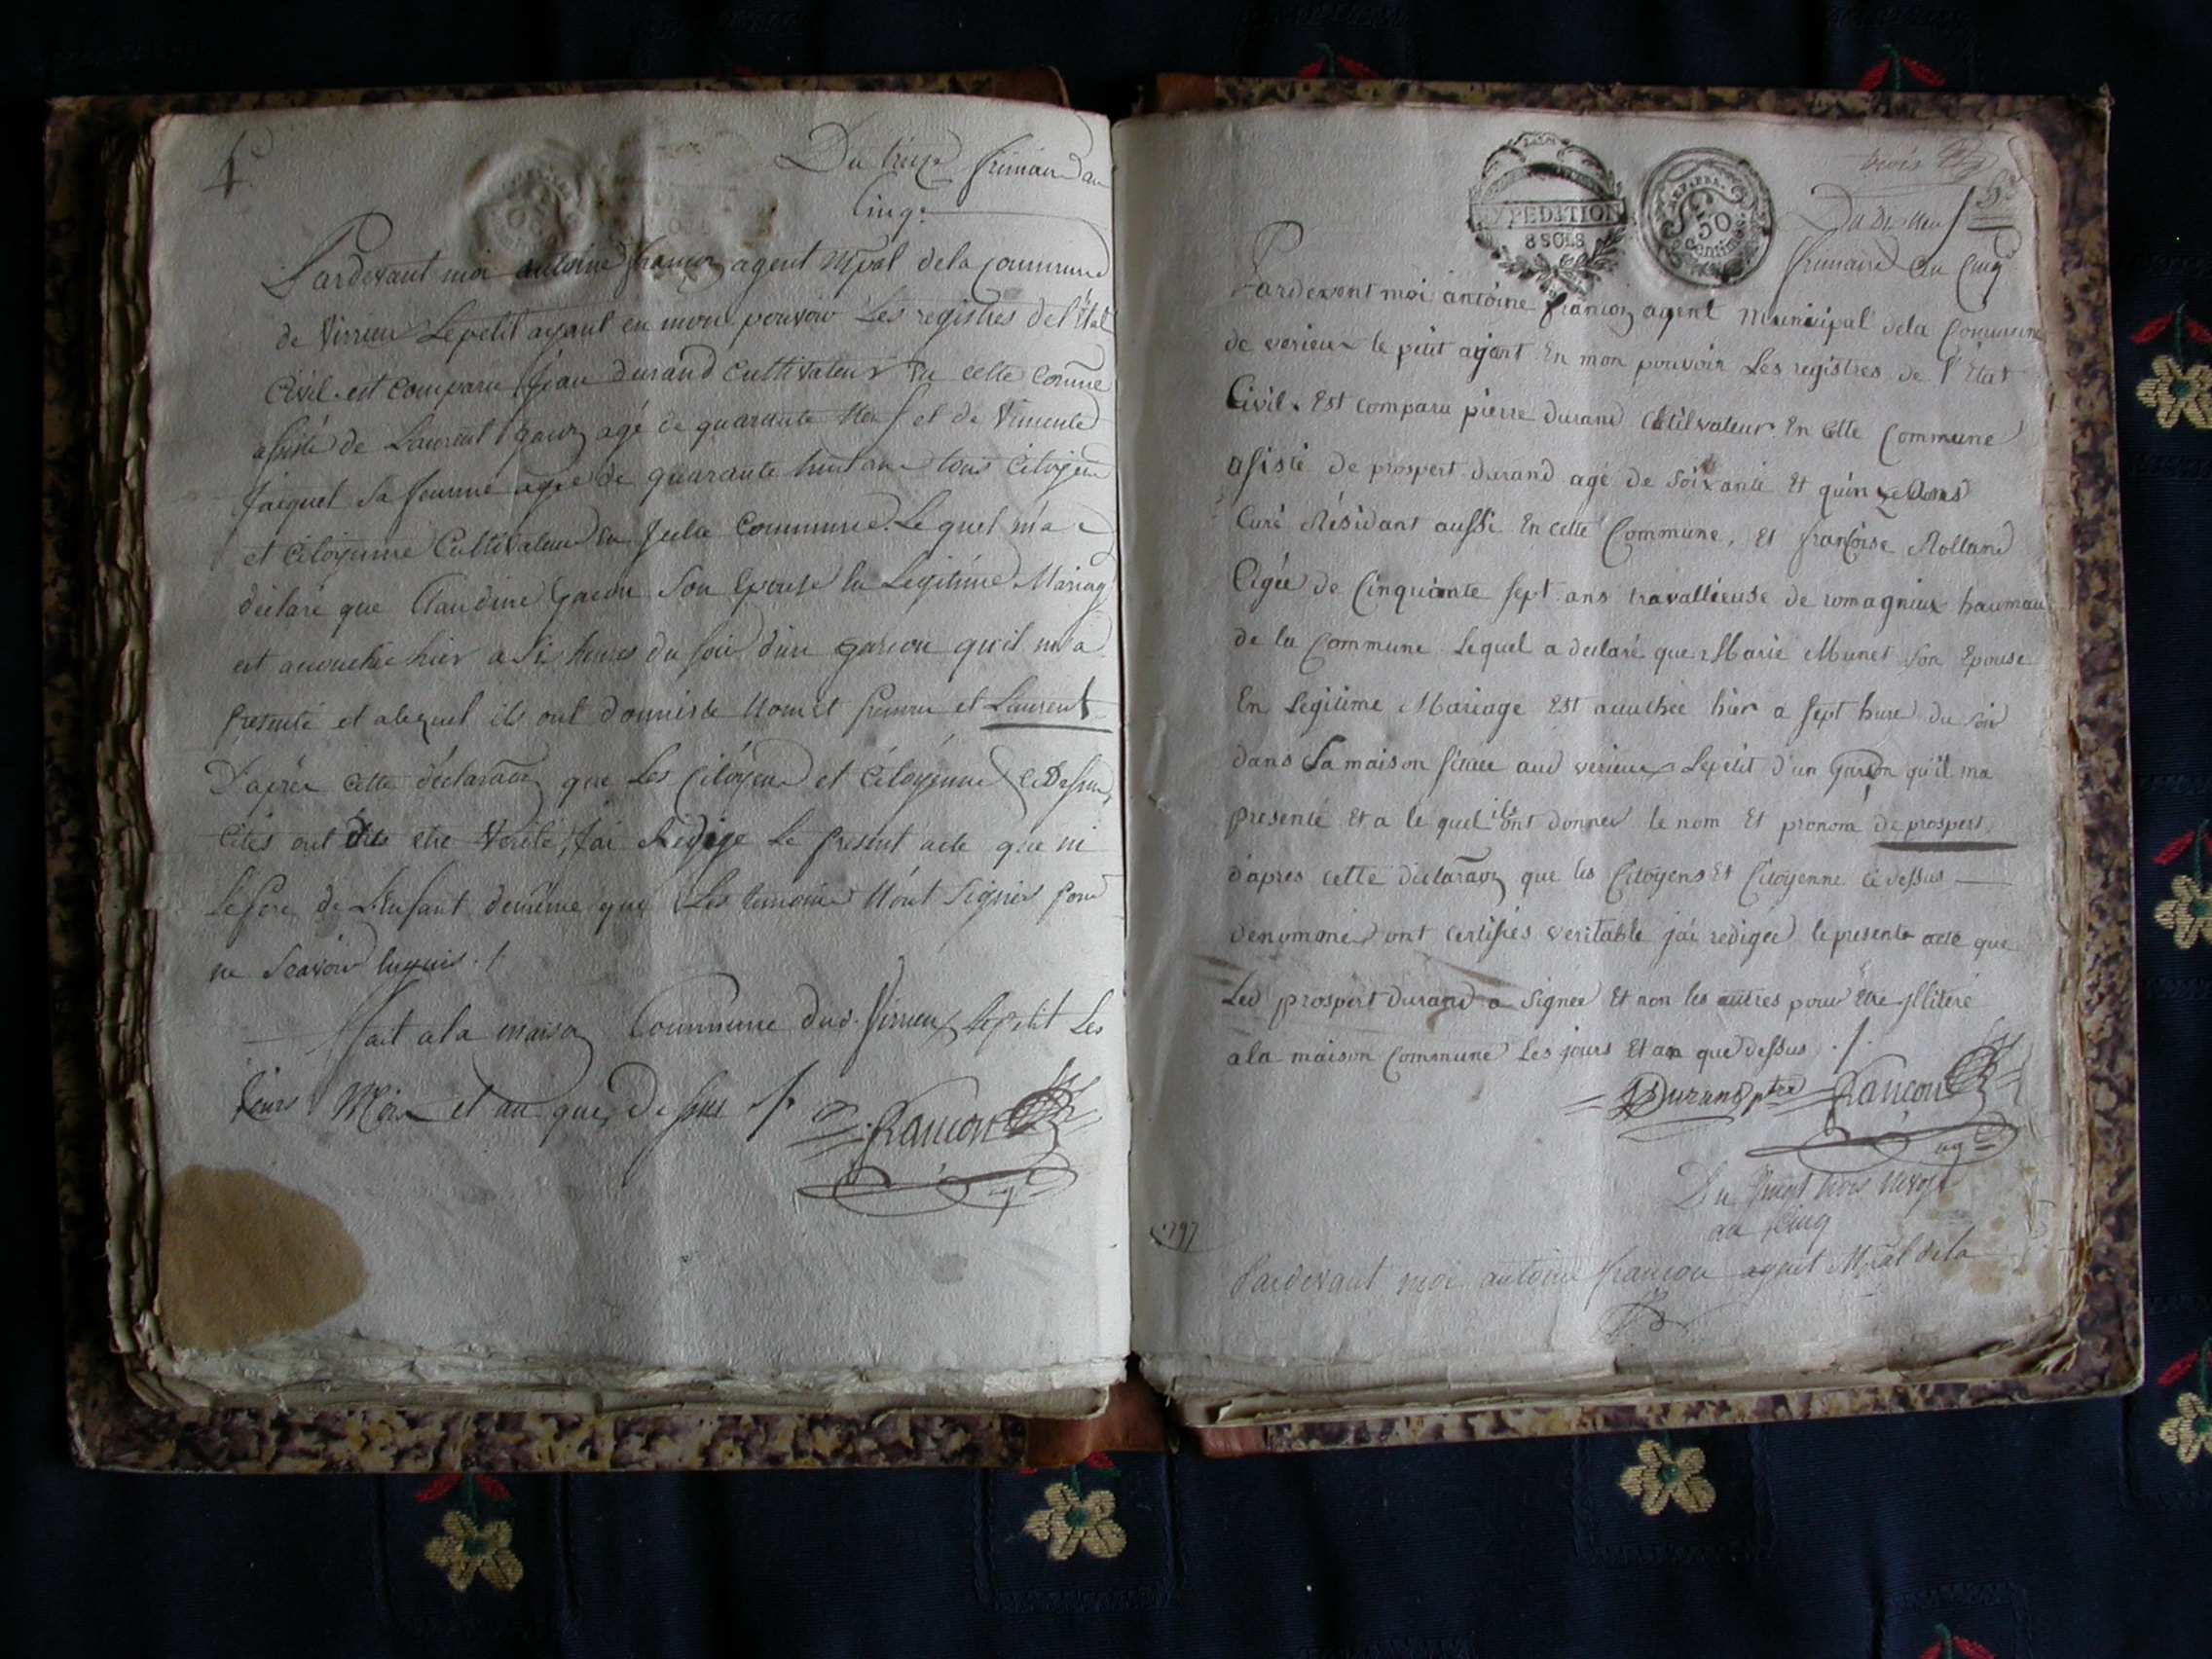 4
Du treize frimaire an
Cinq.
Pardevant moi antoine francon agent Mpal dela Commune
de Virrieu Lepetit ayant en mon pouvoir Les registres de l'État
Civil. est comparu Jean durand Cultivateur En cette Comne
assisté de Laurent agé de quarante neuf et de Vincente
Jacquet Sa femme agée de quarante huit ans tous Citoyen
et Citoyenne Cultivateur En Commune. Le quel m'a
déclaré que Claudine Son Epouse En Legitime Mariage
est accouchée hier a Six heures du soir d'un garcon qu'il m'a
présenté et alequel ils ont donnés le Nom et prenom et Laurent
D'après Cette déclaraon que Les Citoyens et Citoyenne Cidessus
Cités ont dits etre Vérité, J'ai Rédigé Le present acte que ni
Le pere de L'Enfant demême que Les temoins N'ont Signés pour
ne Scavoir Enquis ./.
Fait ala maison Commune dud. Virrieux Lepetit Les
Jours Mois et an que Dessus ./. francon
agt
EXPEDITION
8 SOLS
50
Centimes
trois
5
Du dix neuf
frimaire an Cinq
Pardevent moi antoine francon agent Municipal dela Commune
de verieux le petit ajant En mon pouvoir Les registres de l'Etat
Civil. Est comparu pierre durand Cultilvateur En cette Commune
asisté de prospert durand agé de Soixante Et quinze Ans
Curé Résidant aussi En cette Commune, Et françoise Rolland
Agée de Cinquante sept ans travallieuse de romagnieux haumau
de la Commune Lequel a declaré que Marie Munet Son Epouse
En Legitime Mariage Est acuchée hier a sept hure du soir
dans Sa maison située aud verieux Lepetit d'un Garçon qu'il ma
presenté Et a le quel ils ont donner le nom Et pronom de prospert,
d'apres cette declaraon que les Citoyens Et Citoyenne ci dessus
denommes ont certifiés veritable j'ai redigée le present acte que
Led prospert durand a Signee Et non les autres pour Etre jlliteré
ala maison Commune Les jours Et an que dessus ./.
Durand ptre francon
agt
Du Vingt trois nivose
an Cinq
1797
Pardevant moi antoine francon agent Mpal dela